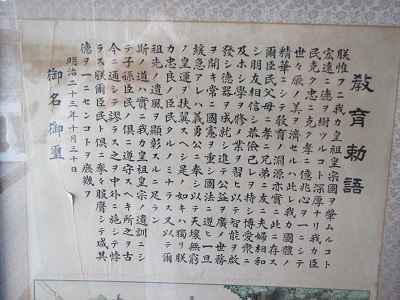 教育勅語
朕惟フニ我カ皇祖皇宗國ヲ肇ムルコト
宏遠ニ德ヲ樹ツルコト深厚ナリ我カ臣
民克ク忠ニ克ク孝ニ億兆心ヲ一ニシテ
世々厥ノ美ヲ濟セルハ此レ我カ國體ノ
精華ニシテ教育ノ淵源亦實ニ此ニ存ス
爾臣民父母ニ孝ニ兄弟ニ友ニ夫婦相和
シ朋友相信シ恭儉己レヲ持シ博愛衆ニ
及ホシ學ヲ修メ業ヲ習ヒ以テ智能ヲ啓
發シ德器ヲ成就シ進テ公益ヲ廣メ世務
ヲ開キ常ニ國憲ヲ重シ國法ニ遵ヒ一旦
緩急アレハ義勇公ニ奉シ以テ天壤無窮
ノ皇運ヲ扶翼スヘシ是ノ如キハ獨リ朕
カ忠良ノ臣民タルノミナラス又以テ爾
祖先ノ遺風ヲ顯彰スルニ足ラン
斯ノ道ハ實ニ我カ皇祖皇宗ノ遺訓ニシ
テ子孫臣民ノ俱ニ遵守スヘキ所之ヲ古
今ニ通シテ謬ラス之ヲ中外ニ施シテ悖
ラス朕爾臣民ト俱ニ拳々服膺シテ咸其
德ヲ一ニセンコトヲ庶幾フ
明治二十三年十月三十日
御名御璽